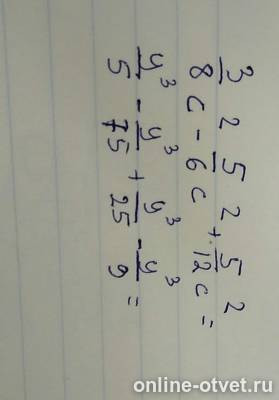 3/8 c² - 5/6 c² + 5/12 c² =
y³/5 - y³/75 + y³/25 - y³/9 =
online-otvet.ru